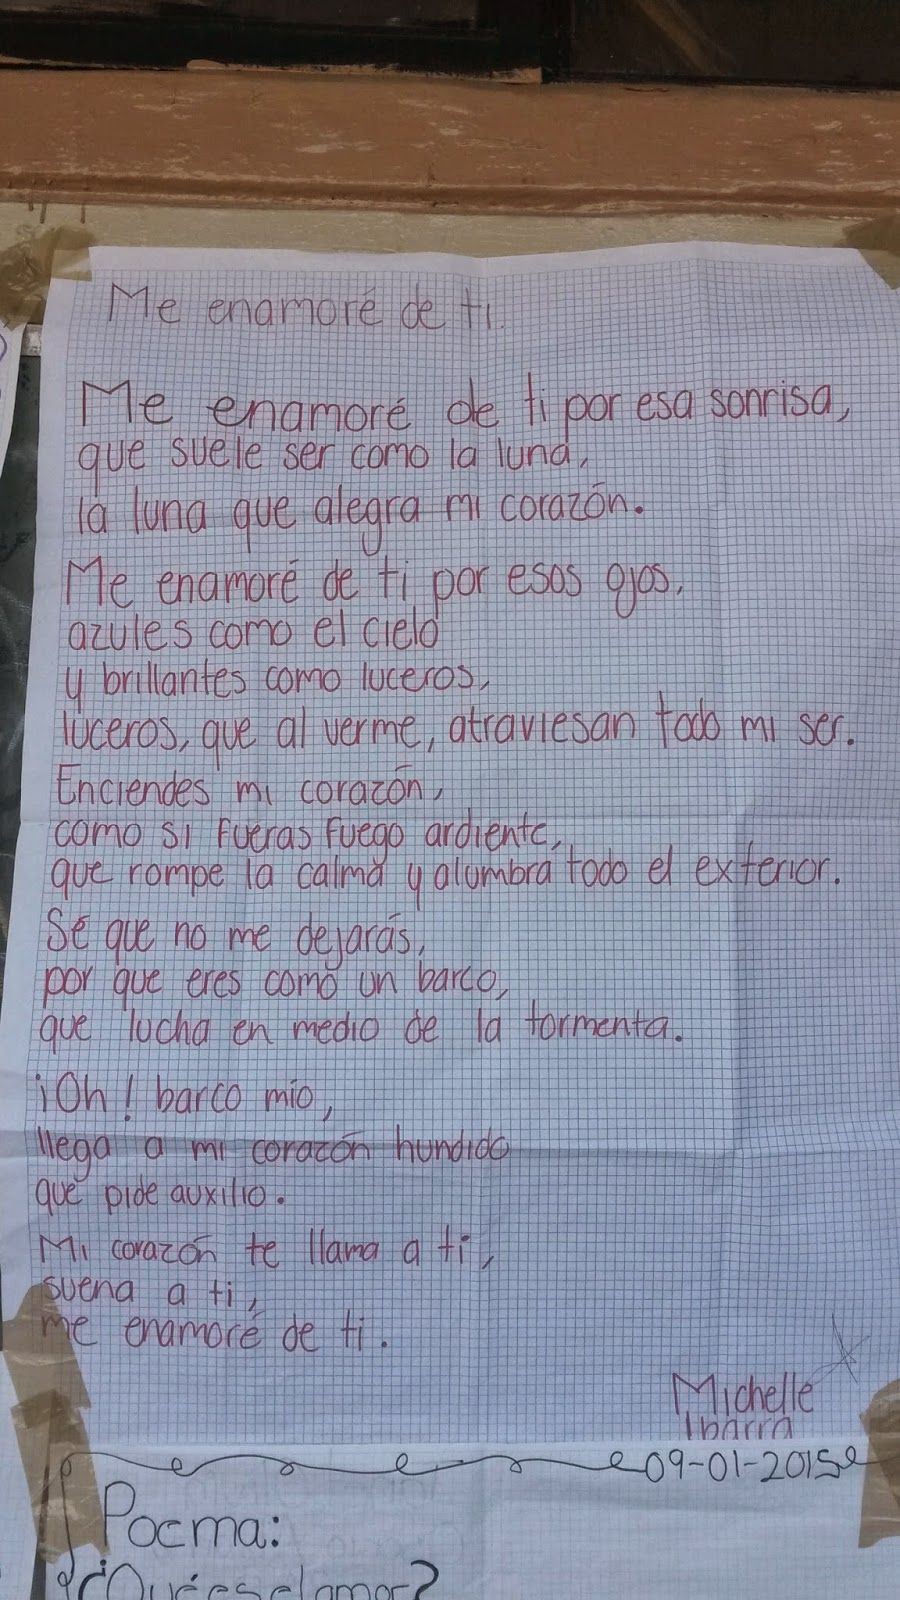 Me enamoré de ti.
Me enamoré de ti por esa sonrisa,
que suele ser como la luna,
la luna que alegra mi corazón.
Me enamoré de ti por esos ojos,
azules como el cielo
y brillantes como luceros,
luceros, que al verme, atraviesan todo mi ser.
Enciendes mi corazón,
como si fueras fuego ardiente,
que rompe la calma y alumbra todo el exterior.
Sé que no me dejarás,
por que eres como un barco,
que lucha en medio de la tormenta.
¡Oh! barco mío,
llega a mi corazón hundido
que pide auxilio.
Mi corazón te llama a ti,
suena a ti,
me enamoré de ti.
Michelle
Ibarra
09-01-2015
Poema:
¿Qué es el amor?